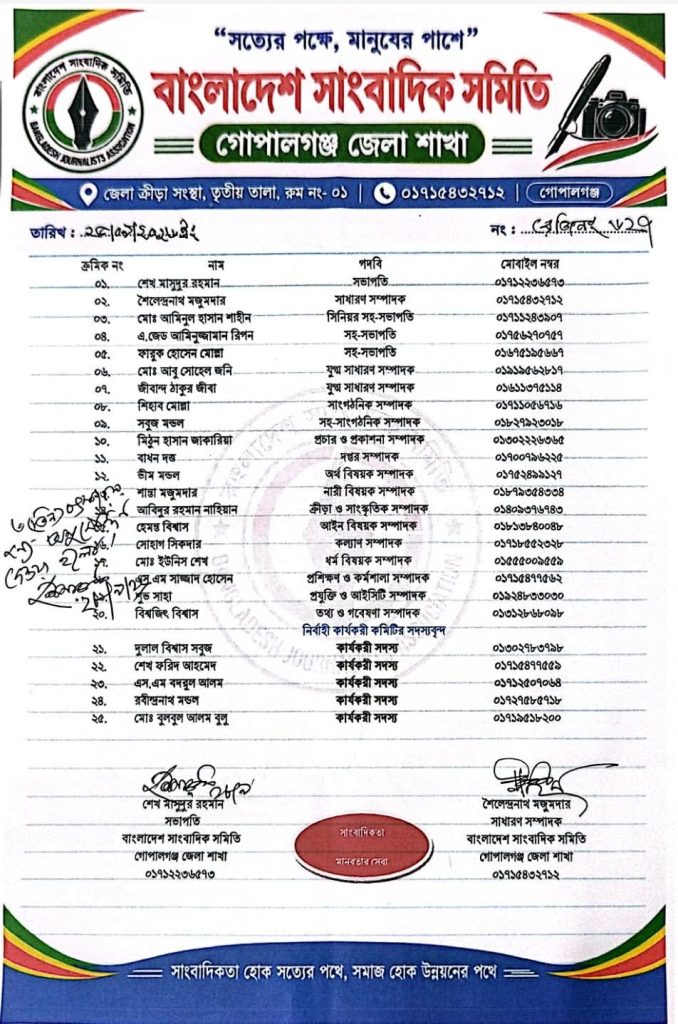 “সত্যের পক্ষে, মানুষের পাশে”
বাংলাদেশ সাংবাদিক সমিতি
গোপালগঞ্জ জেলা শাখা
বাংলাদেশ সাংবাদিক সমিতি
BANGLADESH JOURNALISTS ASSOCIATION
জেলা ক্রীড়া সংস্থা, তৃতীয় তালা, রুম নং- ০১ | ০১৭১৫৪৩২৭১২ | গোপালগঞ্জ
তারিখ : নং :
ক্রমিক নং নাম পদবি মোবাইল নম্বর
০১. শেখ মাসুদুর রহমান সভাপতি ০১৭১২২৩৬৫৭৩
০২. শৈলেন্দ্রনাথ মজুমদার সাধারণ সম্পাদক ০১৭১৫৪৩২৭১২
০৩. মোঃ আমিনুল হাসান শাহীন সিনিয়র সহ-সভাপতি ০১৭১১২৪৩৯০৭
০৪. এ.জেড আমিনুজ্জামান রিপন সহ-সভাপতি ০১৭৫৬২৭০৭৫৭
০৫. ফারুক হোসেন মোল্লা সহ-সভাপতি ০১৬৭৫১৯৫৬৬৭
০৬. মোঃ আবু সোহেল জনি যুগ্ম সাধারণ সম্পাদক ০১৯১৯৫৬২৮১৭
০৭. জীবান্দ ঠাকুর জীবা যুগ্ম সাধারণ সম্পাদক ০১৬১১৩৭৫১১৪
০৮. শিহাব মোল্লা সাংগঠনিক সম্পাদক ০১৭১১০৫৬৭১৬
০৯. সবুজ মন্ডল সহ-সাংগঠনিক সম্পাদক ০১৮২৭৯২৩০১৮
১০. মিঠুন হাসান জাকারিয়া প্রচার ও প্রকাশনা সম্পাদক ০১৩০২২২৬৩৬৫
১১. বাধন দত্ত দপ্তর সম্পাদক ০১৭০০৭৯৬২২৫
১২. ভীম মন্ডল অর্থ বিষয়ক সম্পাদক ০১৭৫২৪৯৯১২৭
শান্তা মজুমদার নারী বিষয়ক সম্পাদক ০১৮৭৯৩৫৪৩৩৪
আবিদুর রহমান নাহিয়ান ক্রীড়া ও সাংস্কৃতিক সম্পাদক ০১৪০৯৩৭৬৭৪৩
হেমন্ত বিশ্বাস আইন বিষয়ক সম্পাদক ০১৮১৩৮৪০০৪৮
সোহাগ সিকদার কল্যাণ সম্পাদক ০১৭১৮৫৫২৩২৮
মোঃ ইউনিস শেখ ধর্ম বিষয়ক সম্পাদক ০১৫৫৫০০৯৫৫৯
এস.এম সাজ্জাদ হোসেন প্রশিক্ষণ ও কর্মশালা সম্পাদক ০১৭১৫৪৭৭৫৬২
শুভ সাহা প্রযুক্তি ও আইসিটি সম্পাদক ০১৯২৪৮৩৩০৩০
২০. বিশ্বজিৎ বিশ্বাস তথ্য ও গবেষণা সম্পাদক ০১৩১২৮৬৮০৯৮
নির্বাহী কার্যকরী কমিটির সদস্যবৃন্দ
২১. দুলাল বিশ্বাস সবুজ কার্যকরী সদস্য ০১৩০২৭৮৩৭৯৮
২২. শেখ ফরিদ আহমেদ কার্যকরী সদস্য ০১৭১৫৪৭৭৫৫৯
২৩. এস.এম বদরুল আলম কার্যকরী সদস্য ০১৭১২৫০৭০৬৪
২৪. রবীন্দ্রনাথ মন্ডল কার্যকরী সদস্য ০১৭২৭৫৮৫৭১৮
২৫. মোঃ বুলবুল আলম বুলু কার্যকরী সদস্য ০১৭১৯৫১৮২০০
শেখ মাসুদুর রহমান শৈলেন্দ্রনাথ মজুমদার
সভাপতি সাধারণ সম্পাদক
বাংলাদেশ সাংবাদিক সমিতি বাংলাদেশ সাংবাদিক সমিতি
গোপালগঞ্জ জেলা শাখা গোপালগঞ্জ জেলা শাখা
০১৭১২২৩৬৫৭৩ ০১৭১৫৪৩২৭১২
সাংবাদিকতা
মানবতার সেবা
সাংবাদিকতা হোক সত্যের পথে, সমাজ হোক উন্নয়নের পথে